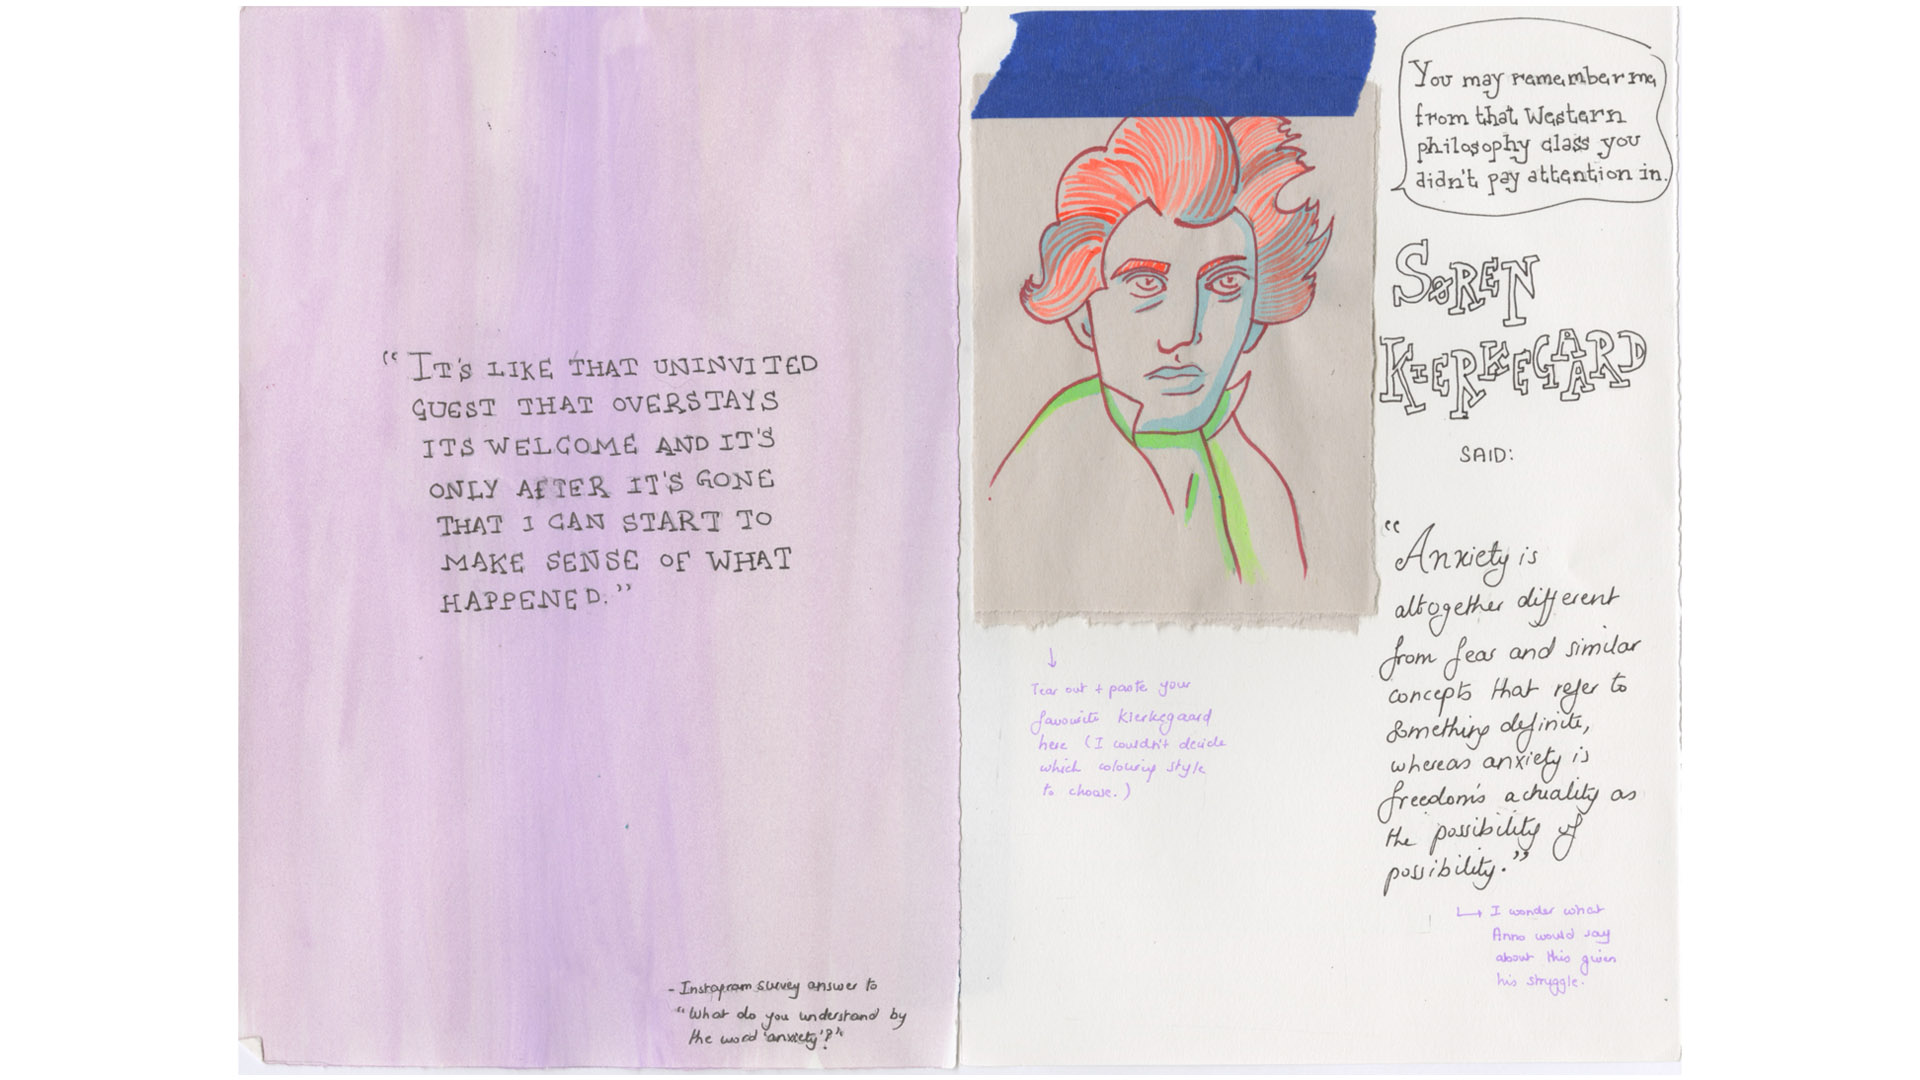 “It's like that uninvited
guest that overstays
its welcome and it's
only after it's gone
that I can start to
make sense of what
happened.”
- Instagram survey answer to
“What do you understand by
the word 'anxiety'?”
You may remember me
from that Western
philosophy class you
didn't pay attention in.
SØREN
KIERKEGAARD
SAID:
“Anxiety is
altogether different
from fear and similar
concepts that refer to
something definite,
whereas anxiety is
freedom's actuality as
the possibility of
possibility.”
↳ I wonder what
Anno would say
about this given
his struggle.
↓
Tear out + paste your
favourite Kierkegaard
here (I couldn't decide
which colouring style
to choose.)